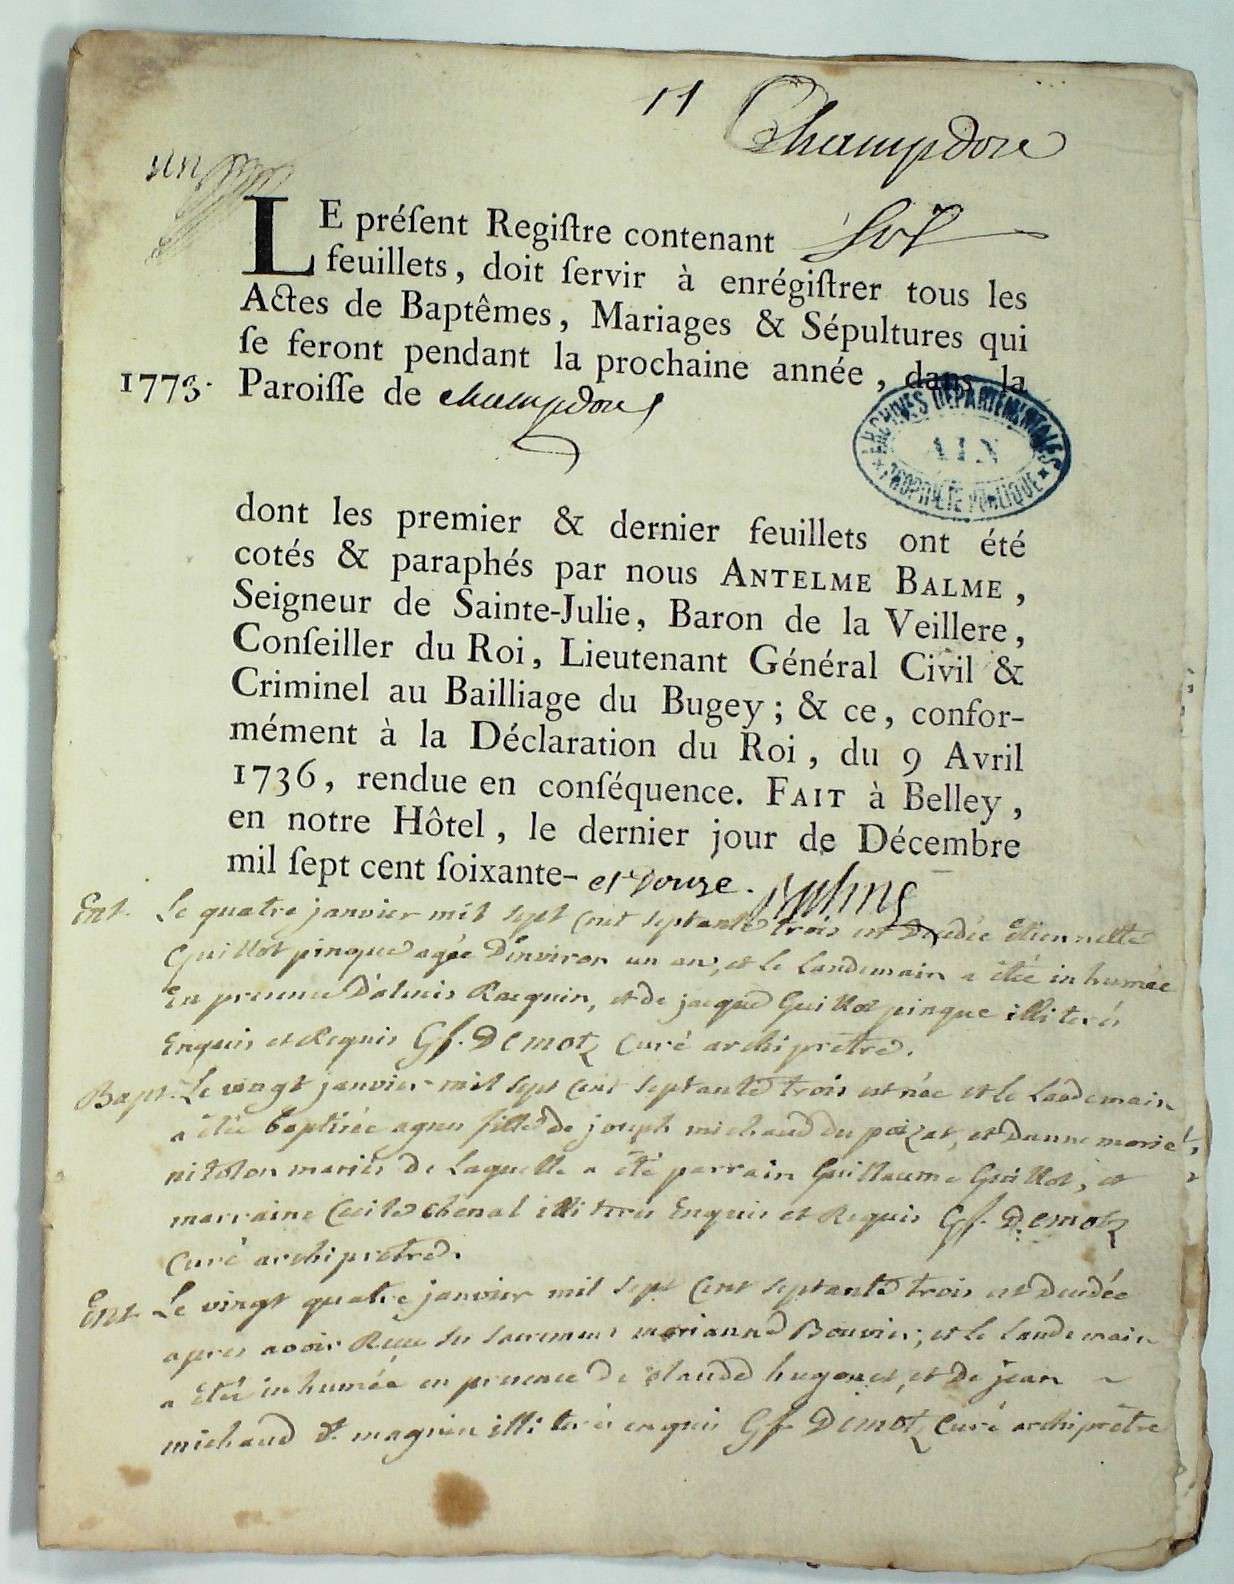 11 Champdore
un
LE préſent Regiſtre contenant
feuillets, doit ſervir à enrégiſtrer tous les
Actes de Baptêmes, Mariages & Sépultures qui
ſe feront pendant la prochaine année, dans la
1773. Paroiſſe de champdore
ARCHIVES DÉPARTEMENTALES
AIN
PROPRIÉTÉ PUBLIQUE
dont les premier & dernier feuillets ont été
cotés & paraphés par nous ANTELME BALME,
Seigneur de Sainte-Julie, Baron de la Veillere,
Conſeiller du Roi, Lieutenant Général Civil &
Criminel au Bailliage du Bugey; & ce, confor-
mément à la Déclaration du Roi, du 9 Avril
1736, rendue en conſéquence. FAIT à Belley,
en notre Hôtel, le dernier jour de Décembre
mil ſept cent ſoixante- et douze. Balme
Ent. Le quatre janvier mil sept cent septante trois est decedée etiennette
Guillot pinque agée d'environ un an, et le landemain a étée inhumée
En presence D'aluis Racquin, et de jacque Guillot pinque illiterés
Enquis et Requis Gf. Demotz curé archipretre.
Bapt. Le vingt janvier mil sept cent septante trois est née et le landemain
a étée baptisée agnes fille de joseph michaud du poizat, et danne marie
nitolon mariés de laquelle a été parrain Guillaume Guillot, et
marraine Cecile chenal illiterés Enquis et Requis Gf. Demotz
Curé archipretre.
Ent. Le vingt quatre janvier mil sept cent septante trois est decedée
apres avoir Reçue ses sacremens marianne Bouvier, et le landemain
a étée inhumée en presence de claude hugonet, et de jean
michaud magnin illiterés enquis Gf Demotz Curé archipretre